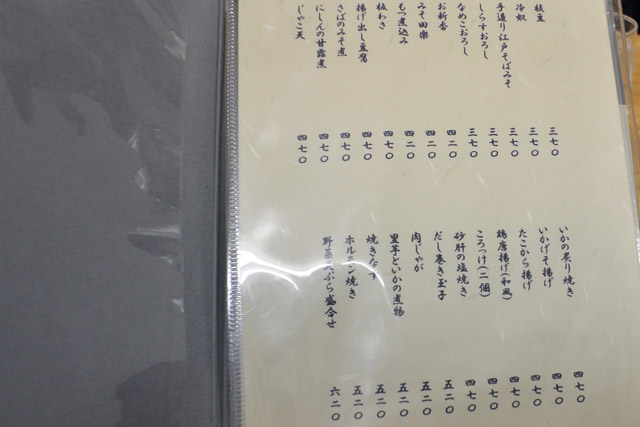 枝豆 三七〇
冷奴 三七〇
手造り江戸そばみそ 三七〇
しらすおろし 三七〇
なめこおろし 三七〇
お新香 四二〇
みそ田楽 四二〇
もつ煮込み 四二〇
板わさ 四七〇
揚げ出し豆腐 四七〇
さばのみそ煮 四七〇
にしんの甘露煮 四七〇
じゃこ天 四七〇
いかの炙り焼き 四七〇
いかげそ揚げ 四七〇
たこから揚げ 四七〇
鶏唐揚げ(和風) 四七〇
ころっけ(二個) 四七〇
砂肝の塩焼き 四七〇
だし巻き玉子 五二〇
肉じゃが 五二〇
里芋といかの煮物 五二〇
焼きなす 五二〇
ホルモン焼き 五二〇
野菜天ぷら盛合せ 六二〇